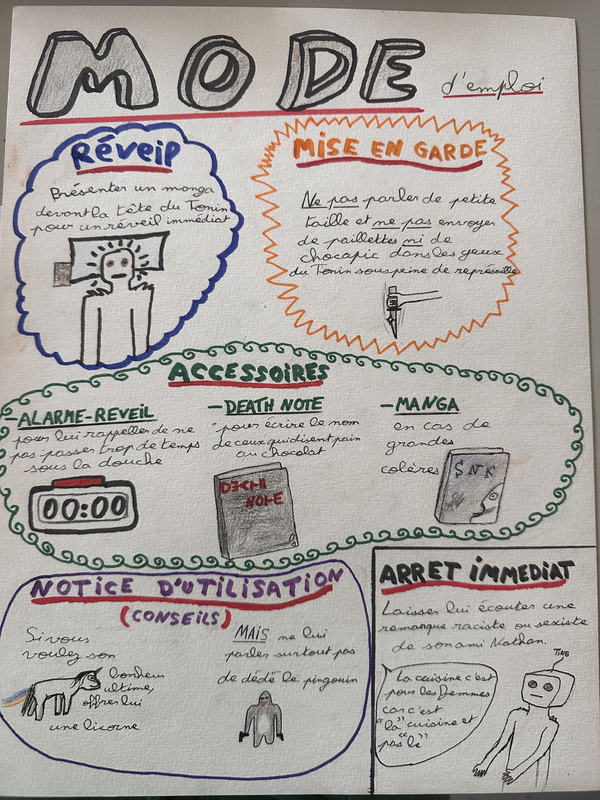 MODE
d'emploi
Réveil
Présenter un manga
devant la tête du Tonin
pour un réveil immédiat
MISE EN GARDE
Ne pas parler de petite
taille et ne pas envoyer
de paillettes ni de
chocapic dans les yeux
du Tonin sous peine de représaille
ACCESSOIRES
-ALARME-REVEIL
pour lui rappeller de ne
pas passer trop de temps
sous la douche
00:00
-DEATH NOTE
pour écrire le nom
de ceux qui disent pain
au chocolat
DEATH
NOTE
-MANGA
en cas de
grandes
colères
SNK
NOTICE D'UTILISATION
(CONSEILS)
Si vous
voulez son
bonheur
ultime,
offrez lui
une licorne
MAIS ne lui
parler surtout pas
de dédé le pingouin
ARRET IMMEDIAT
Laisser lui écouter une
remarque raciste ou sexiste
de son ami Nathan.
TING
La cuisine c'est
pour les femmes
car c'est
"la" cuisine et
pas "le"